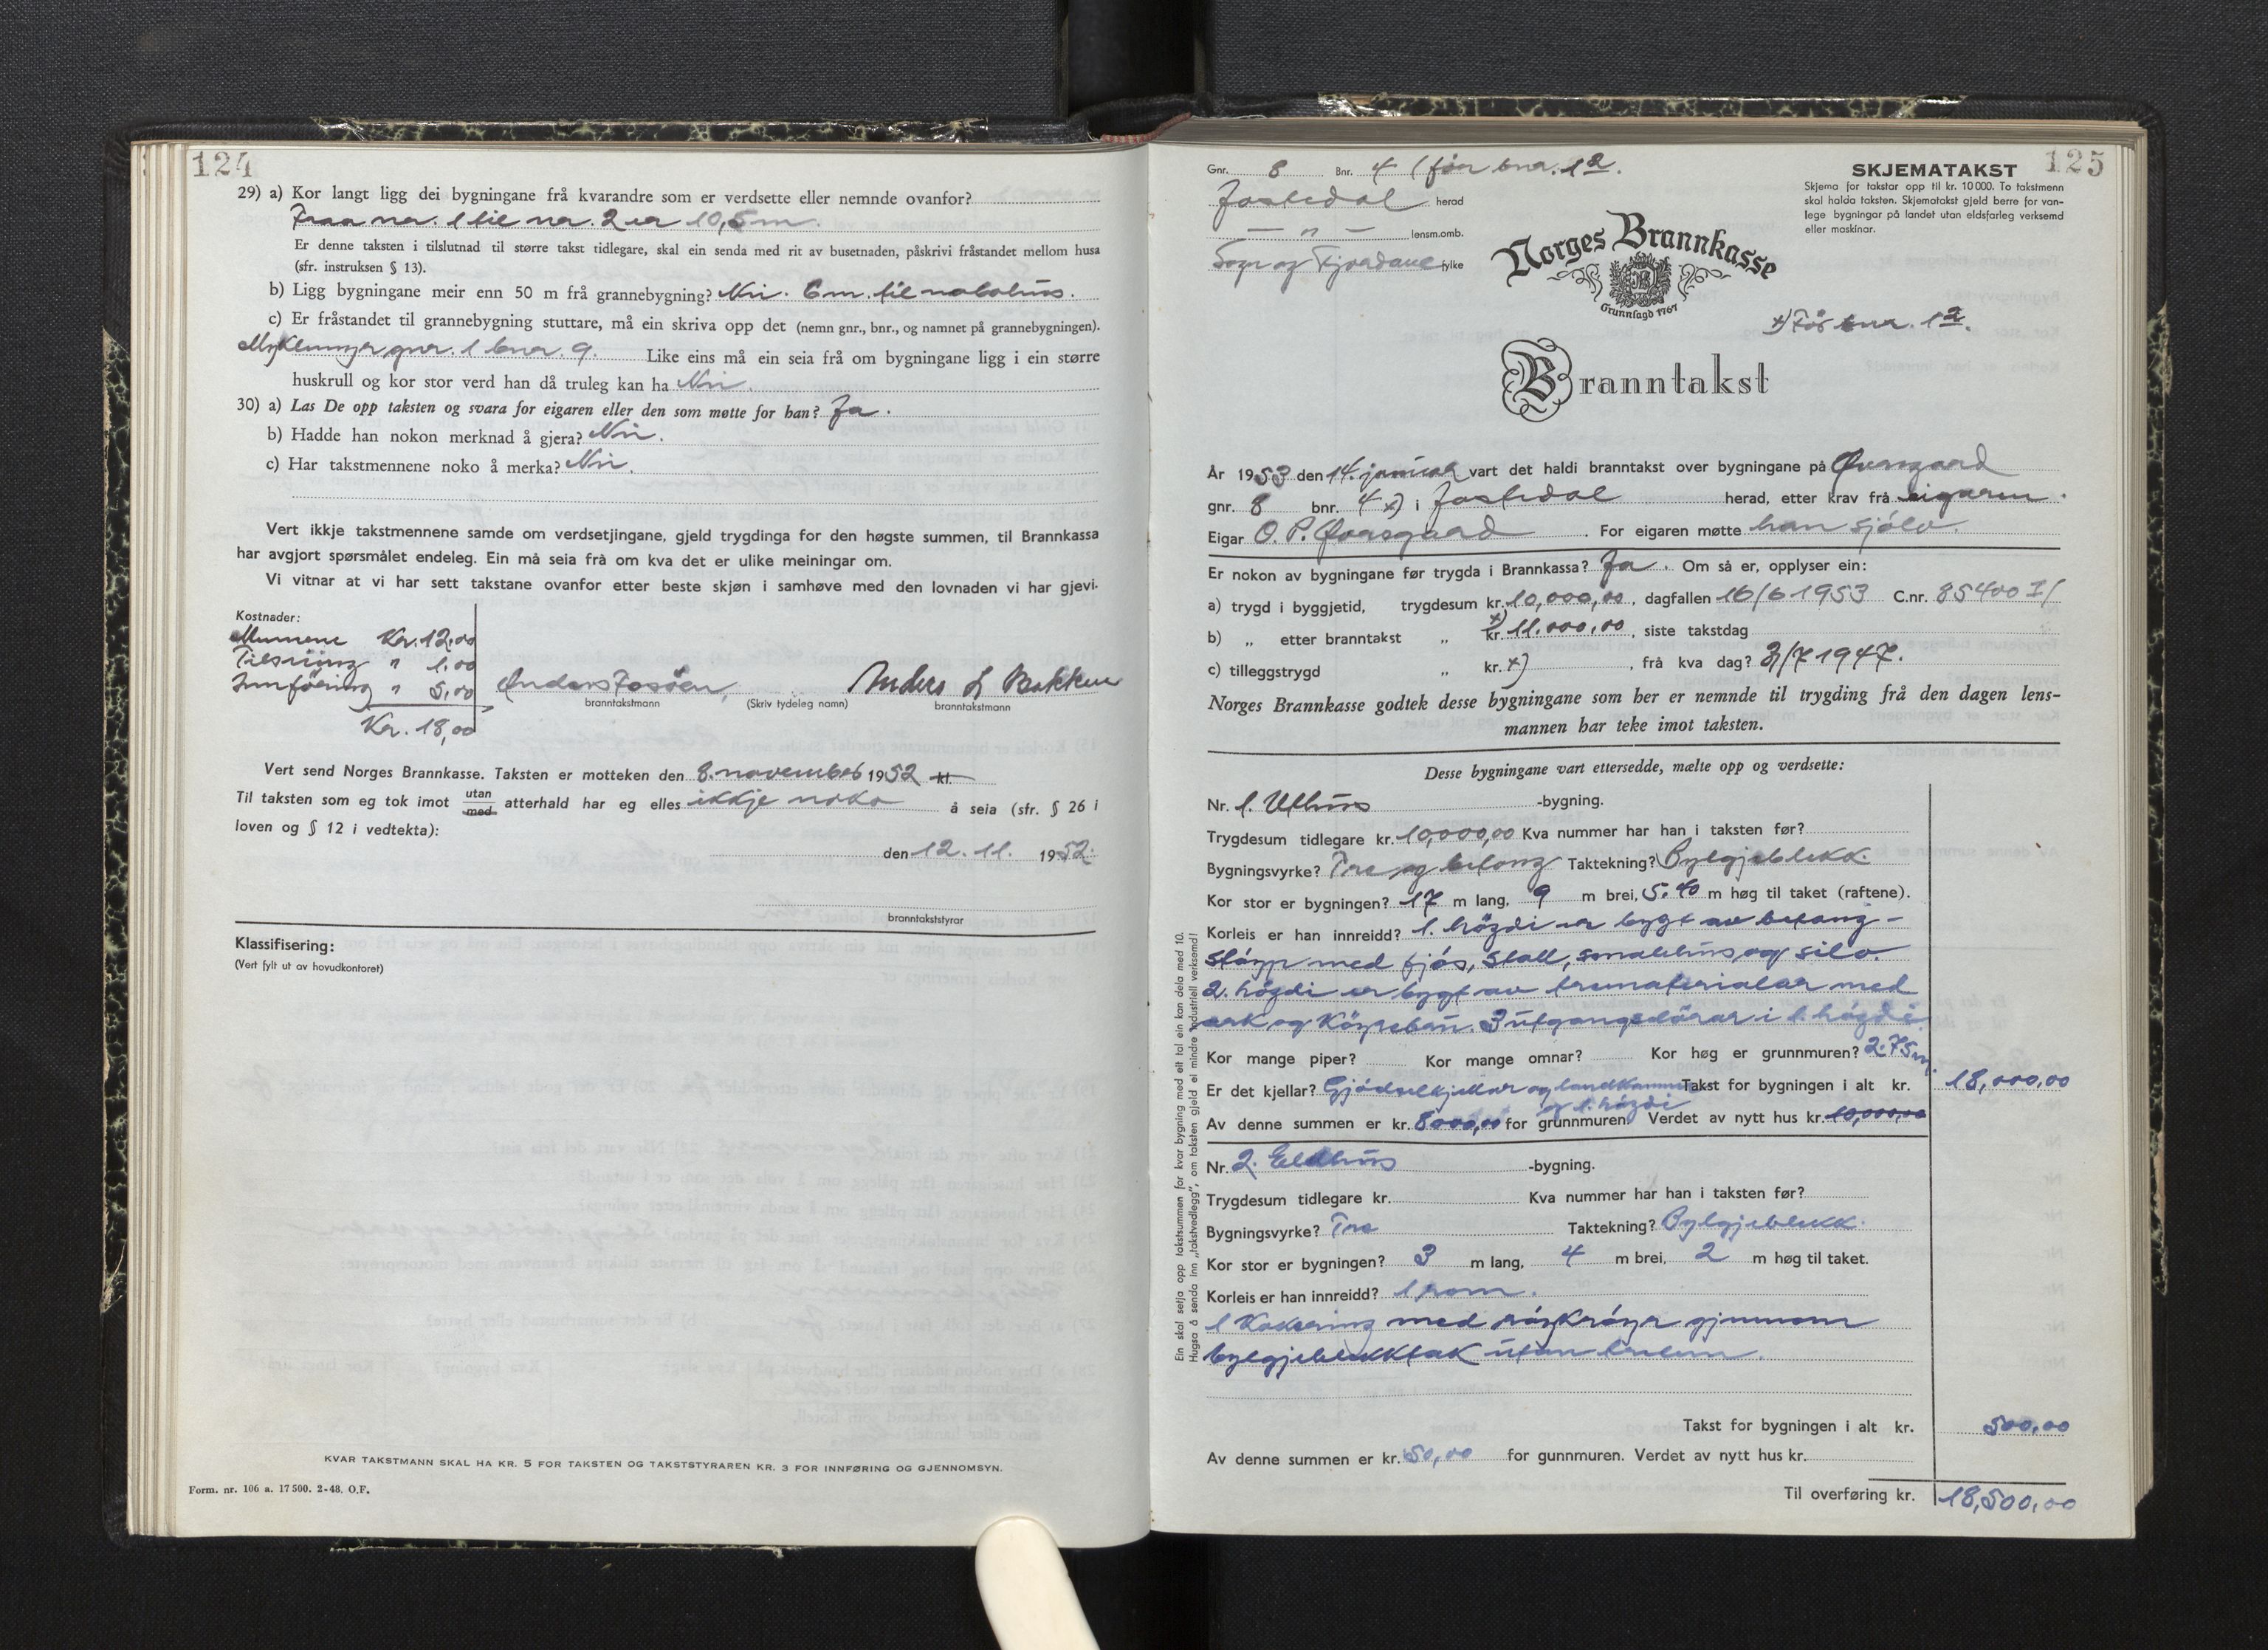 124
29) a) Kor langt ligg dei bygningane frå kvarandre som er verdsette eller nemnde ovanfor?
Fraa nr. 1 til nr. 2 er 10,5 m.
Er denne taksten i tilslutnad til større takst tidlegare, skal ein senda med rit av busetnaden, påskrivi fråstandet mellom husa
(sfr. instruksen § 13).
b) Ligg bygningane meir enn 50 m frå grannebygning? Nei. 6 m. til nabohus.
c) Er fråstandet til grannebygning stuttare, må ein skriva opp det (nemn gnr., bnr., og namnet på grannebygningen).
Myklemyr gnr. 1 bnr. 9. Like eins må ein seia frå om bygningane ligg i ein større
huskrull og kor stor verd han då truleg kan ha Nei.
30) a) Las De opp taksten og svara for eigaren eller den som møtte for han? Ja.
b) Hadde han nokon merknad å gjera? Nei.
c) Har takstmennene noko å merka? Nei.
Vert ikkje takstmennene samde om verdsetjingane, gjeld trygdinga for den høgste summen, til Brannkassa
har avgjort spørsmålet endeleg. Ein må seia frå om kva det er ulike meiningar om.
Vi vitnar at vi har sett takstane ovanfor etter beste skjøn i samhøve med den lovnaden vi har gjevi.
Kostnader:
Mennene Kr. 12.00
Tilsegjing " 1.00
Innföring " 5,00
Kr. 18,00
Anders Fosöen
branntakstmann
(Skriv tydeleg namn)
Anders L Bakken
branntakstmann
Vert send Norges Brannkasse. Taksten er motteken den 8. november 1952 kl.
Til taksten som eg tok imot utan/med atterhald har eg elles ikkje noko å seia (sfr. § 26 i
loven og § 12 i vedtekta):
den 12. 11. 1952.
branntakststyrar
Klassifisering:
(Vert fylt ut av hovudkontoret)
KVAR TAKSTMANN SKAL HA KR. 5 FOR TAKSTEN OG TAKSTSTYRAREN KR. 3 FOR INNFØRING OG GJENNOMSYN.
Form. nr. 106 a. 17 500. 2-48. O.F.
125
Gnr. 8 Bnr. 4 (før bnr. 12.
Jostedal herad
— " — lensm.omb.
Sogn og Fjordane fylke
SKJEMATAKST
Skjema for takstar opp til kr. 10 000. To takstmenn
skal halda taksten. Skjematakst gjeld berre for van-
lege bygningar på landet utan eldsfarleg verksemd
eller maskinar.
Norges Brannkasse
Grunnlagd 1767
x) Før bnr. 12.
Branntakst
År 1953 den 14. januar vart det haldi branntakst over bygningane på Øvregaard
gnr. 8 bnr. 4 x) i Jostedal herad, etter krav frå eigaren.
Eigar O. P. Øvregaard. For eigaren møtte han sjölv.
Er nokon av bygningane før trygda i Brannkassa? Ja. Om så er, opplyser ein:
a) trygd i byggjetid, trygdesum kr. 10,000,00, dagfallen 16/6 1953 C.nr. 85400 I/
b) „ etter branntakst „ kr. x) 11.000,00, siste takstdag
c) tilleggstrygd „ kr. x), frå kva dag? 3/7 1947.
Norges Brannkasse godtek desse bygningane som her er nemnde til trygding frå den dagen lens-
mannen har teke imot taksten.
Desse bygningane vart ettersedde, mælte opp og verdsette:
Nr. 1. Uthus -bygning.
Trygdesum tidlegare kr. 10,000,00 Kva nummer har han i taksten før?
Bygningsvyrke? Tre og betong Taktekning? Bylgjeblekk.
Kor stor er bygningen? 17 m lang, 9 m brei, 5.40 m høg til taket (raftene).
Korleis er han innreidd? 1. högdi er bygt av betong-
stöyp med fjös, stall, smalehus og silo.
2. högdi er bygt av trematerialar med
ark og köyrebru. 3 utgangsdörar i 1. högdi.
Kor mange piper? Kor mange omnar? Kor høg er grunnmuren? 2.75 m.
Er det kjellar? Gjödselkjellar og landkummer Takst for bygningen i alt kr. 18,000,00
og 1. högdi
Av denne summen er kr. 8000,00 for grunnmuren. Verdet av nytt hus kr. 10,000,00
Nr. 2. Eldhus -bygning.
Trygdesum tidlegare kr. Kva nummer har han i taksten før?
Bygningsvyrke? Tre Taktekning? Bylgjeblekk.
Kor stor er bygningen? 3 m lang, 4 m brei, 2 m høg til taket.
Korleis er han innreidd? 1 rom.
1 Kokering med röykröyr gjennom
bylgjeblekktak utan brulem.
Takst for bygningen i alt kr. 500,00
Av denne summen er kr. 50,00 for gunnmuren. Verdet av nytt hus kr.
Til overføring kr. 18,500,00
Ein skal setja opp takstsummen for kvar bygning med eit tal ein kan dela med 10.
Hugsa å senda inn „takstvedlegg", om taksten gjeld ei mindre industriell verksemd!